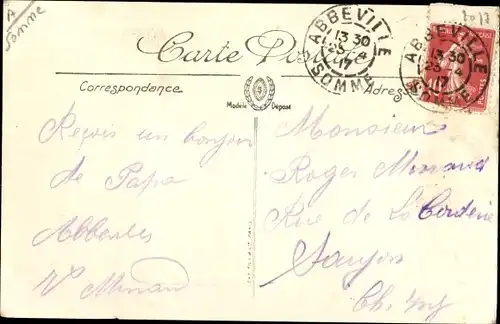 A
Somme
Carte Postale
ABBEVILLE
13 30
23 - 4
17
SOMME
ABBEVILLE
13 30
23 - 4
17
SOMME
POSTES
Correspondance
Modèle Déposé
Adresse
Reçois un bonjour
de Papa
Abbeville
Monsieur
Roger
Rue de La
Saujon
Ch. Inf